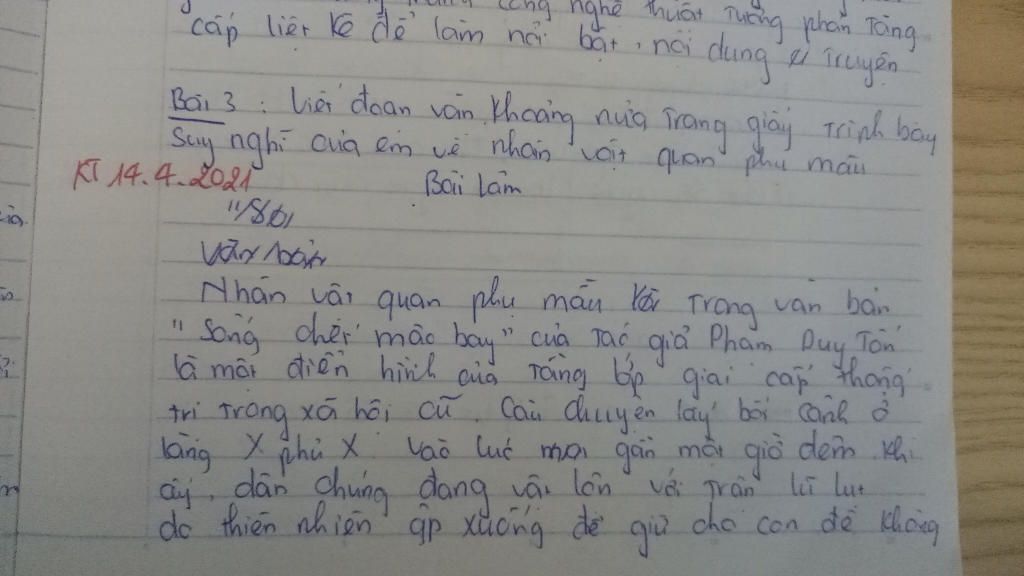 công nghệ thuật tương phản tăng
cấp liệt kê để làm nổi bật nội dung truyện
Bài 3 : Viết đoạn văn khoảng nửa trang giấy trình bày
suy nghĩ của em về nhân vật quan phụ mẫu
KT 14.4.2021
Bài làm
Văn bản
Nhân vật quan phụ mẫu trong văn bản
"Sống chết mặc bay" của tác giả Phạm Duy Tốn
là một điển hình của tầng lớp giai cấp thống
trị trong xã hội cũ. Câu chuyện lấy bối cảnh ở
làng X phủ X vào lúc gần một giờ đêm khi
ấy, dân chúng đang vật lộn với trận lũ lụt
do thiên nhiên ập xuống để giữ cho con đê không